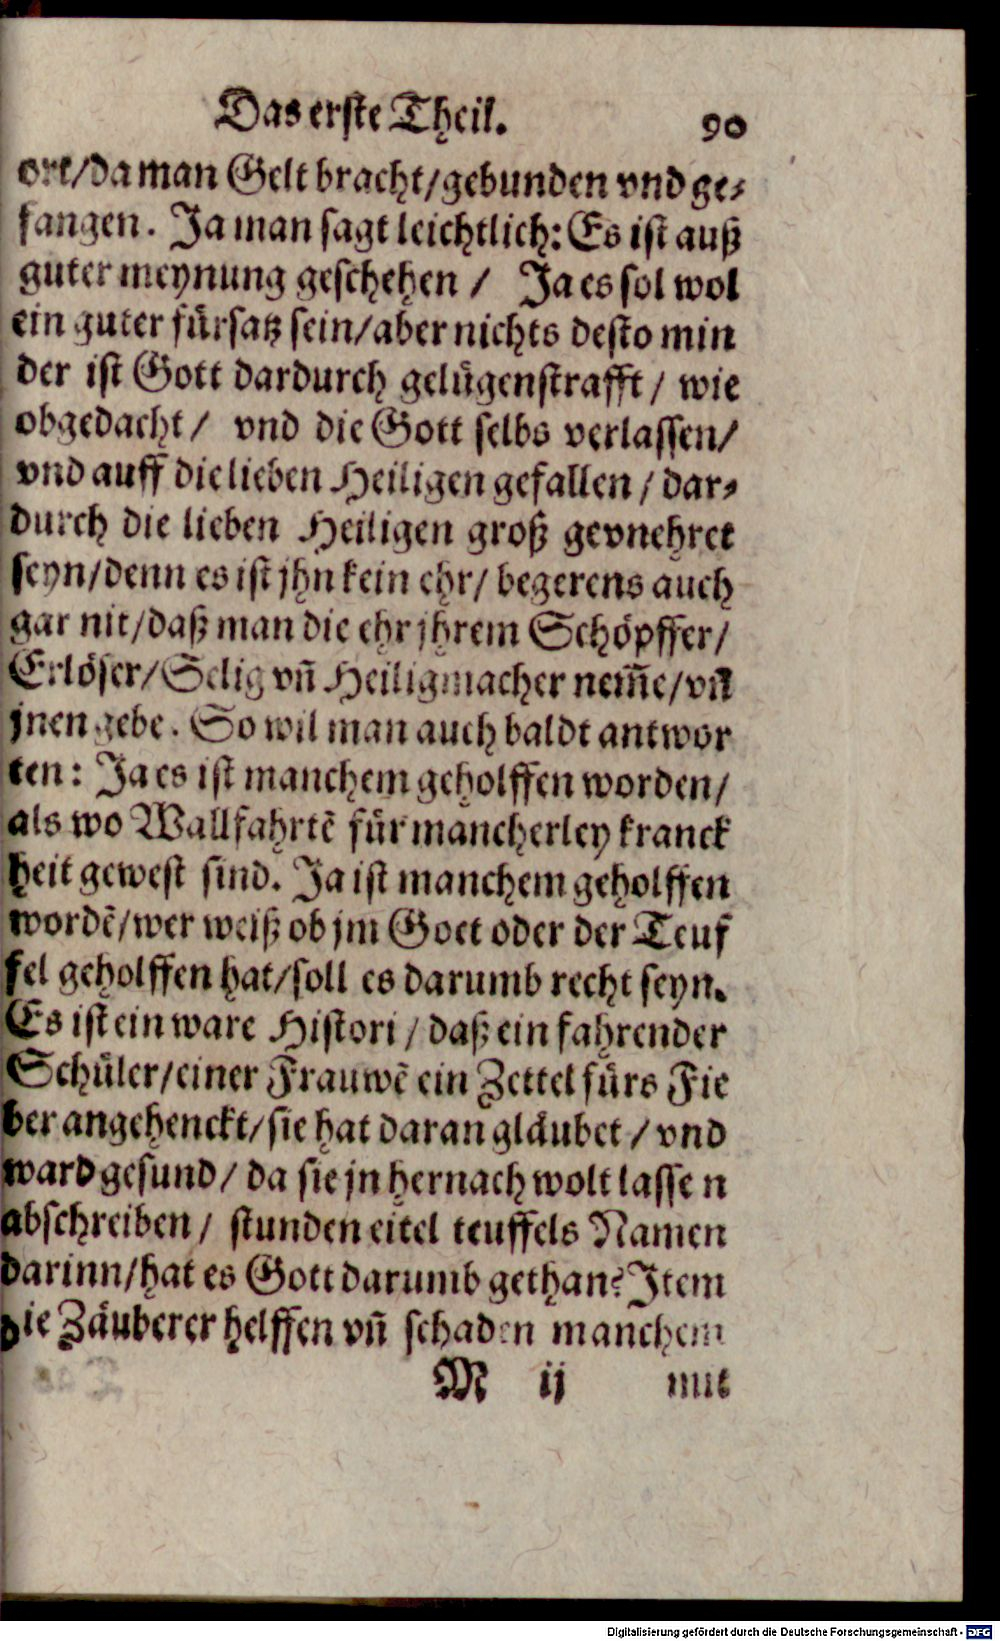 Das erste Theil. 90
ort/da man Gelt bracht/gebunden vnd ge-
fangen. Ja man sagt leichtlich: Es ist auß
guter meynung geschehen / Ja es sol wol
ein guter fürsatz sein/aber nichts desto min
der ist Gott dardurch gelügenstrafft / wie
obgedacht / vnd die Gott selbs verlassen/
vnd auff die lieben Heiligen gefallen / dar-
durch die lieben Heiligen groß gevnehret
seyn/denn es ist jhn kein ehr/ begerens auch
gar nit/daß man die ehr jhrem Schöpffer/
Erlöser/Selig vñ Heiligmacher nem̃e/vñ
jnen gebe. So wil man auch baldt antwor
ten: Ja es ist manchem geholffen worden/
als wo Wallfahrtẽ für mancherley kranck
heit gewest sind. Ja ist manchem geholffen
wordẽ/wer weiß ob jm Gott oder der Teuf
fel geholffen hat/soll es darumb recht seyn.
Es ist ein ware Histori / daß ein fahrender
Schüler/einer Frauwẽ ein Zettel fürs Fie
ber angehenckt/sie hat daran gläubet / vnd
ward gesund/ da sie jn hernach wolt lassen
abschreiben / stunden eitel teuffels Namen
darinn/hat es Gott darumb gethan? Item
die Zäuberer helffen vñ schaden manchem
M ij mit
Digitalisierung gefördert durch die Deutsche Forschungsgemeinschaft - DFG